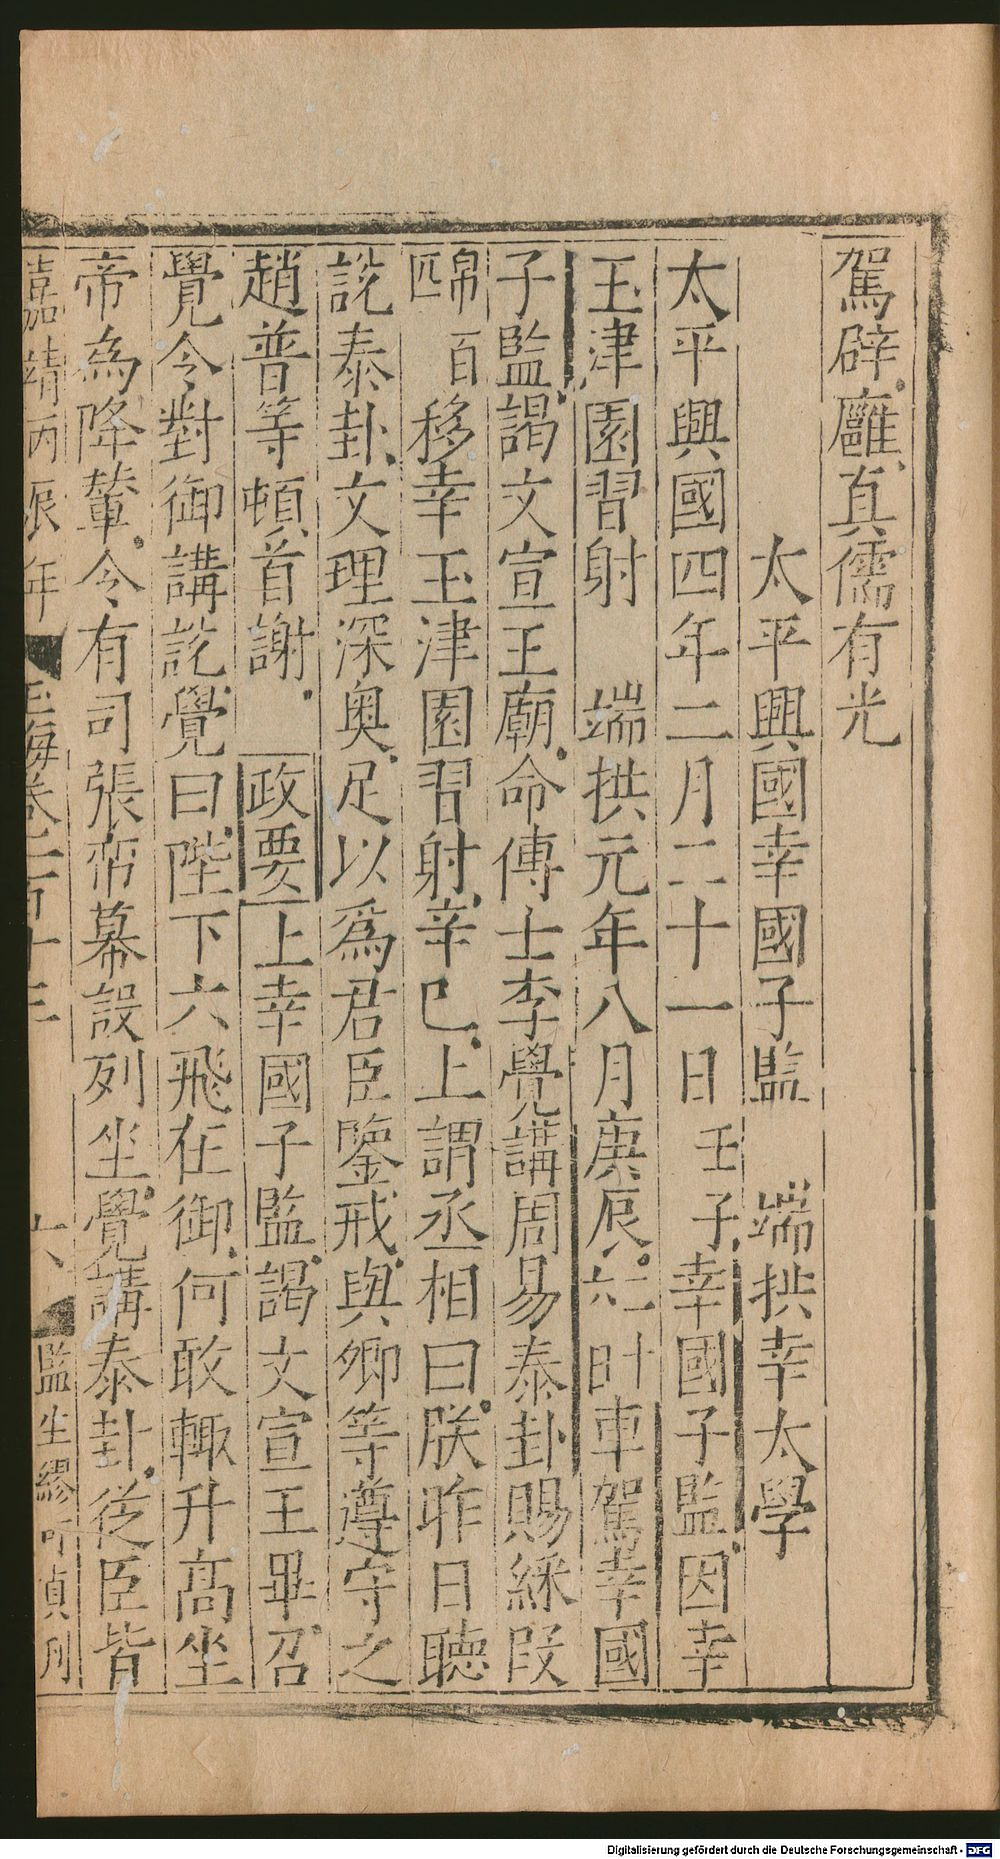 駕辟廱真儒有光
太平興國幸國子監　端拱幸太學
太平興國四年二月二十一日壬子幸國子監因幸
玉津園習射　端拱元年八月庚辰六二十時車駕幸國
子監謁文宣王廟命博士李覺講周易泰卦賜綵段
百匹帛移幸玉津園習射辛巳上謂丞相曰朕昨日聽
說泰卦文理深奧足以爲君臣鑒戒與卿等遵守之
趙普等頓首謝　政要上幸國子監謁文宣王畢召
覺令對御講訖覺曰陛下六飛在御何敢輙升高坐
帝為降輦令有司張帟幕設列坐覺講泰卦從臣皆
嘉靖丙辰年　玉海卷一百十三　六　監生繆可貞刊
Digitalisierung gefördert durch die Deutsche Forschungsgemeinschaft - DFG